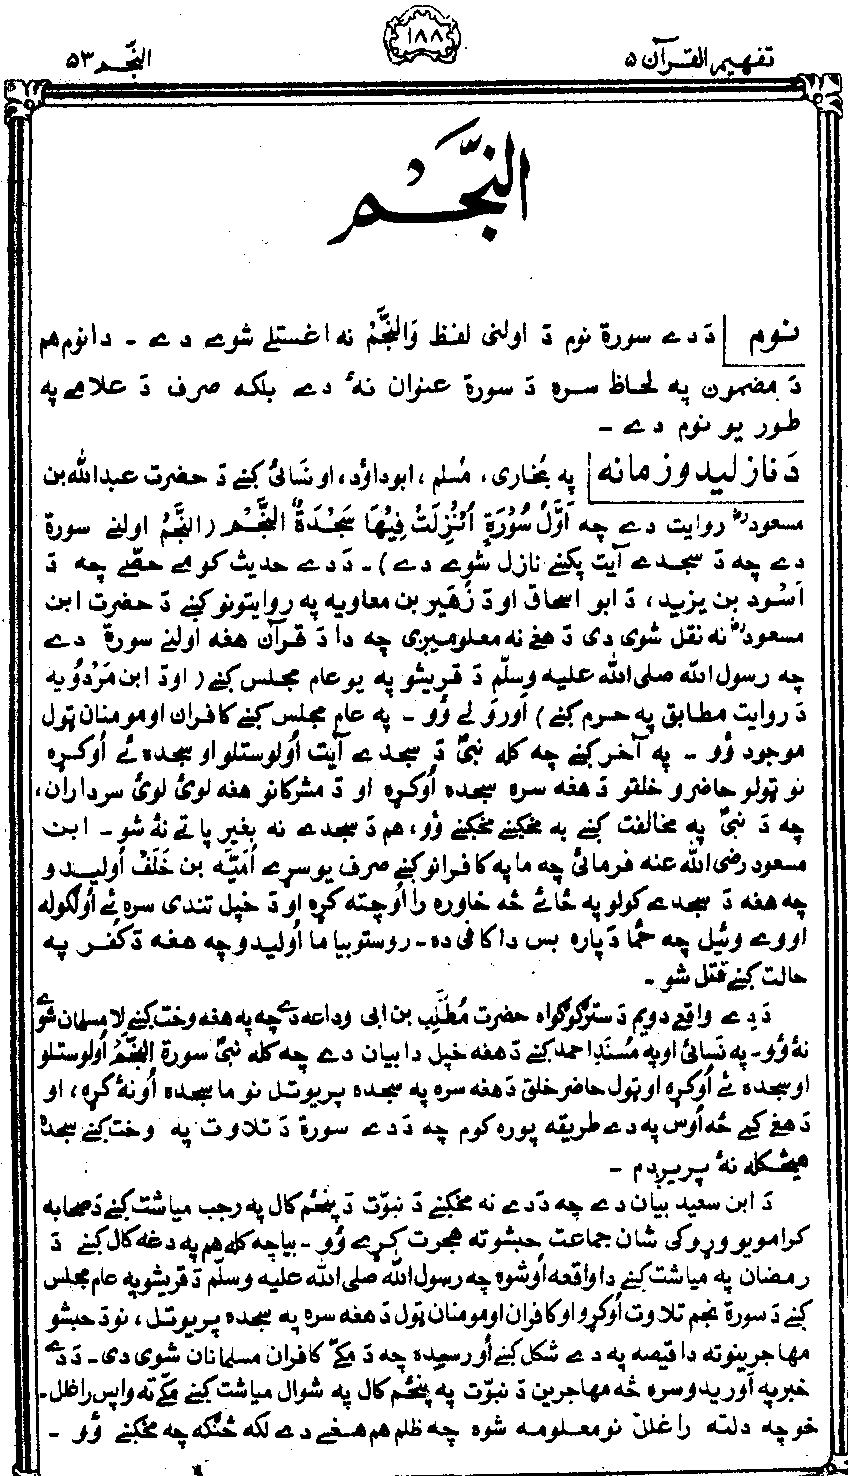 تفهیم القرآن ۵
۱۸۸
النّجم ۵۳
النَّجْم
نوم دَ دے سورۃ نوم دَ اولنی لفظ وَالنَّجْمُ نه اغستلے شوے دے ۔ دا نوم هم
دَ مضمون په لحاظ سره دَ سورۃ عنوان نهٔ دے بلکه صرف دَ علامے په
طور یو نوم دے ۔
دَ نازلیدو زمانه په بُخاری، مُسلم ، ابوداوٗد، او نَسائیٔ کښے دَ حضرت عبدالله بن
مسعودؓ روایت دے چه اَوَّلُ سُوْرَةٍ اُنْزِلَتْ فِیْهَا سَجْدَةٌ النَّجْم (النَّجْمُ اولنے سورۃ
دے چه دَ سجدے آیت پکښے نازل شوے دے) ۔ دَ دے حدیث کومے حصّے چه دَ
اَسْوَد بن یزید، دَ ابو اسحاق او دَ زُهَیر بن معاویه په روایتونو کښے دَ حضرت ابن
مسعودؓ نه نقل شوی دی دَ هغے نه معلومیږی چه دا دَ قرآن هغه اولنے سورۃ دے
چه رسول الله صلی الله علیه وسلّم دَ قریشو په یو عام مجلس کښے (او دَ ابن مَرْدُوْیه
دَ روایت مطابق په حرم کښے) اَورَولے وُو ۔ په عام مجلس کښے کافران او مومنان ټول
موجود وُو ۔ په آخر کښے چه کله نبیؐ دَ سجدے آیت اُولوستلو او سجده ئے اُوکړه
نو ټولو حاضرو خلقو دَ هغه سره سجده اُوکړه او دَ مشرکانو هغه لویٔ لویٔ سرداران،
چه دَ نبیؐ په مخالفت کښے به مخکښے مخکښے وُو، هم دَ سجدے نه بغیر پاتے نهٔ شو ۔ ابن
مسعود رضی الله عنه فرمائی چه ما په کافرانو کښے صرف یو سړے اُمَیّه بن خَلَف اُولیدو
چه هغه دَ سجدے کولو په ځائے څه خاوره را اُوچته کړه او دَ خپل تندی سره ئے اُولګوله
او وے وئیل چه ځما دَ پاره بس دا کافی ده ۔ روستو بیا ما اُولیدو چه هغه دَ کفر په
حالت کښے قتل شو ۔
دَ دے واقعے دویم دَ سترګو ګواه حضرت مُطَّلِب بن ابی وداعه دے چه په هغه وخت کښے لا مسلمان شوے
نهٔ وُو ۔ په نَسائی او په مُسندِ احمد کښے دَ هغه خپل دا بیان دے چه کله نبیؐ سورۃ النَّجْمُ اُولوستلو
او سجده ئے اُوکړه او ټول حاضر خلق دَ هغه سره په سجده پریوتل نو ما سجده اُونهٔ کړه، او
دَ هغے کمے څه اُوس په دے طریقه پوره کوم چه دَ دے سورۃ دَ تلاوت په وخت کښے سجده
هیڅکله نهٔ پریږدم ۔
دَ ابن سعید بیان دے چه دَ دے نه مخکښے دَ نبوّت دَ پنځم کال په رجب میاشت کښے دَ صحابه
کرامو یو وړوکی شان جماعت حبشو ته هجرت کړے وُو ۔ بیا چه کله هم په دغه کال کښے دَ
رمضان په میاشت کښے دا واقعه اُوشوه چه رسول الله صلی الله علیه وسلّم دَ قریشو په عام مجلس
کښے دَ سورۃ نجم تلاوت اُوکړو او کافران او مومنان ټول دَ هغه سره په سجده پریوتل، نو دَ حبشو
مهاجرینو ته دا قیصه په دے شکل کښے اُورسیده چه دَ مکّے کافران مسلمانان شوی دی ۔ دَ دے
خبر په اَوریدو سره څه مهاجرین دَ نبوّت په پنځم کال په شوال میاشت کښے مکّے ته واپس راغلل ۔
خو چه دلته راغلل نو معلومه شوه چه ظلم هم هغسے دے لکه څنګه چه مخکښے وُو ۔